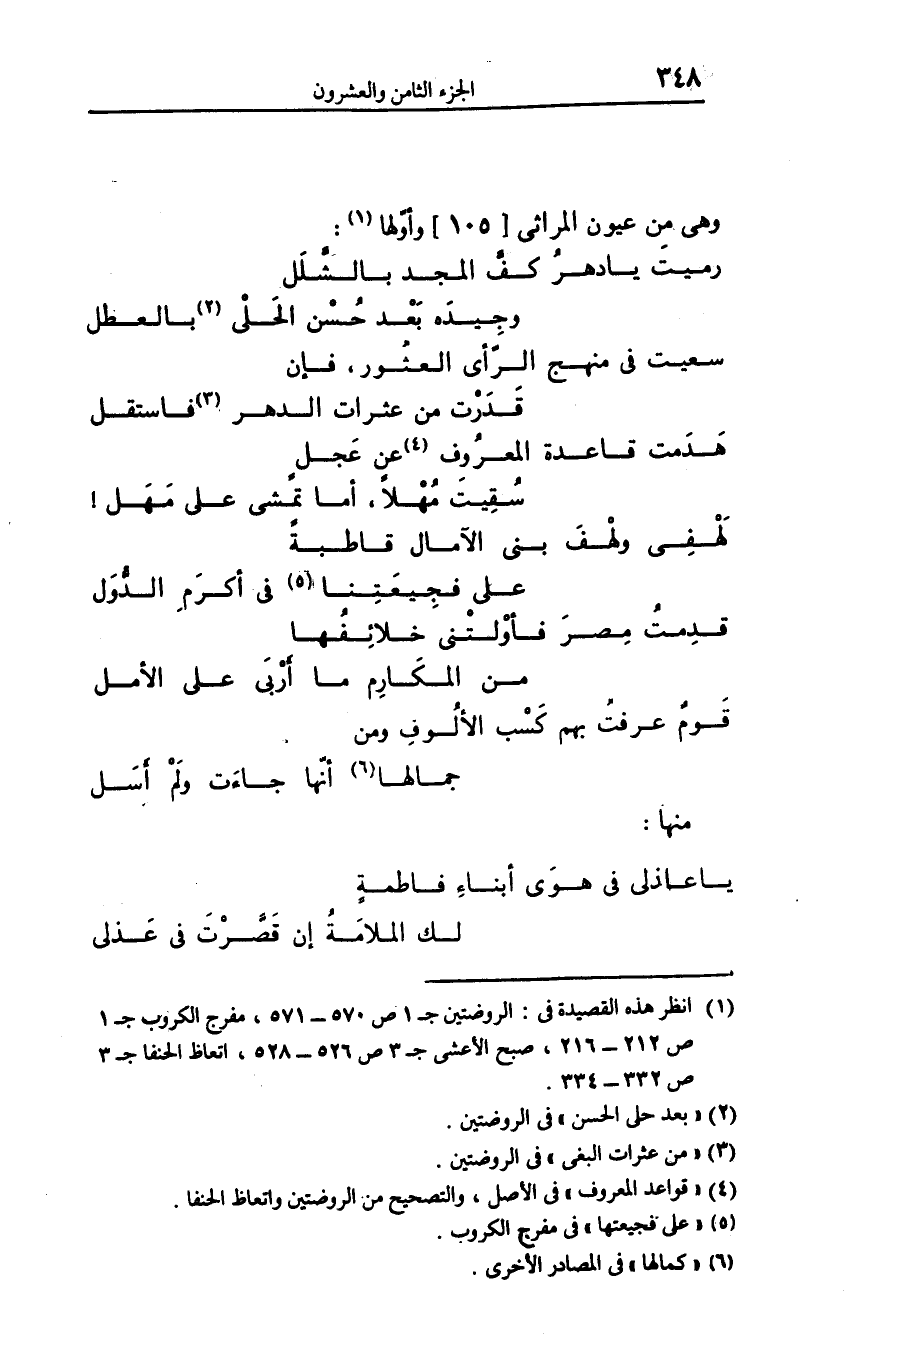 ٣٤٨
الجزء الثامن والعشرون
وهى من عيون المراثى [ ١٠٥ ] وأوّلها (١) :
رميتَ يادهرُ كفَّ المجد بالشَّلَل
وجِيدَه بَعْد حُسْن الحَلْى (٢) بالعطل
سعيت فى منهج الرّأى العثُور ، فإن
قَدَرْت من عثرات الدهر (٣) فاستقل
هَدَمت قاعدة المعرُوف (٤) عن عَجلٍ
سُقِيتَ مُهْلاً ، أما تمْشى على مَهَل !
لَهْفِى ولهْفَ بنى الآمال قاطبةً
على فجِيعَتِنا (٥) فى أكرَمِ الدُّوَل
قدِمتُ مِصرَ فأوْلتْنى خلائِفُها
من المكَارِم ما أَرْبَى على الأمل
قَومٌ عرفتُ بهم كَسْب الأُلُوفِ ومن
جمالها (٦) أنّها جاءَت ولَمْ أَسَل
منها :
ياعاذلى فى هوَى أبناءِ فاطمةٍ
لك الملامَةُ إن قَصَّرْتَ فى عَذلى
(١) انظر هذه القصيدة فى : الروضتين جـ ١ ص ٥٧٠ – ٥٧١ ، مفرج الكروب جـ ١
ص ٢١٢ – ٢١٦ ، صبح الأعشى جـ ٣ ص ٥٢٦ – ٥٢٨ ، اتعاظ الحنفا جـ ٣
ص ٣٣٢ – ٣٣٤ .
(٢) « بعد حلى الحسن » فى الروضتين .
(٣) « من عثرات البغى » فى الروضتين .
(٤) « قواعد المعروف » فى الأصل ، والتصحيح من الروضتين واتعاظ الحنفا .
(٥) « على فجيعتها » فى مفرج الكروب .
(٦) « كمالها » فى المصادر الأخرى .